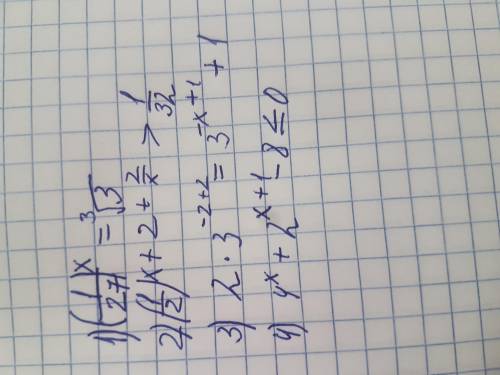 1) (1/27)^x = ∛3
2) (1/2)^x + 2 + 2/x > 1/32
3) 2 · 3^(-2+2) = 3^(-x+1) + 1
4) 4^x + 2^(x+1) - 8 ≤ 0